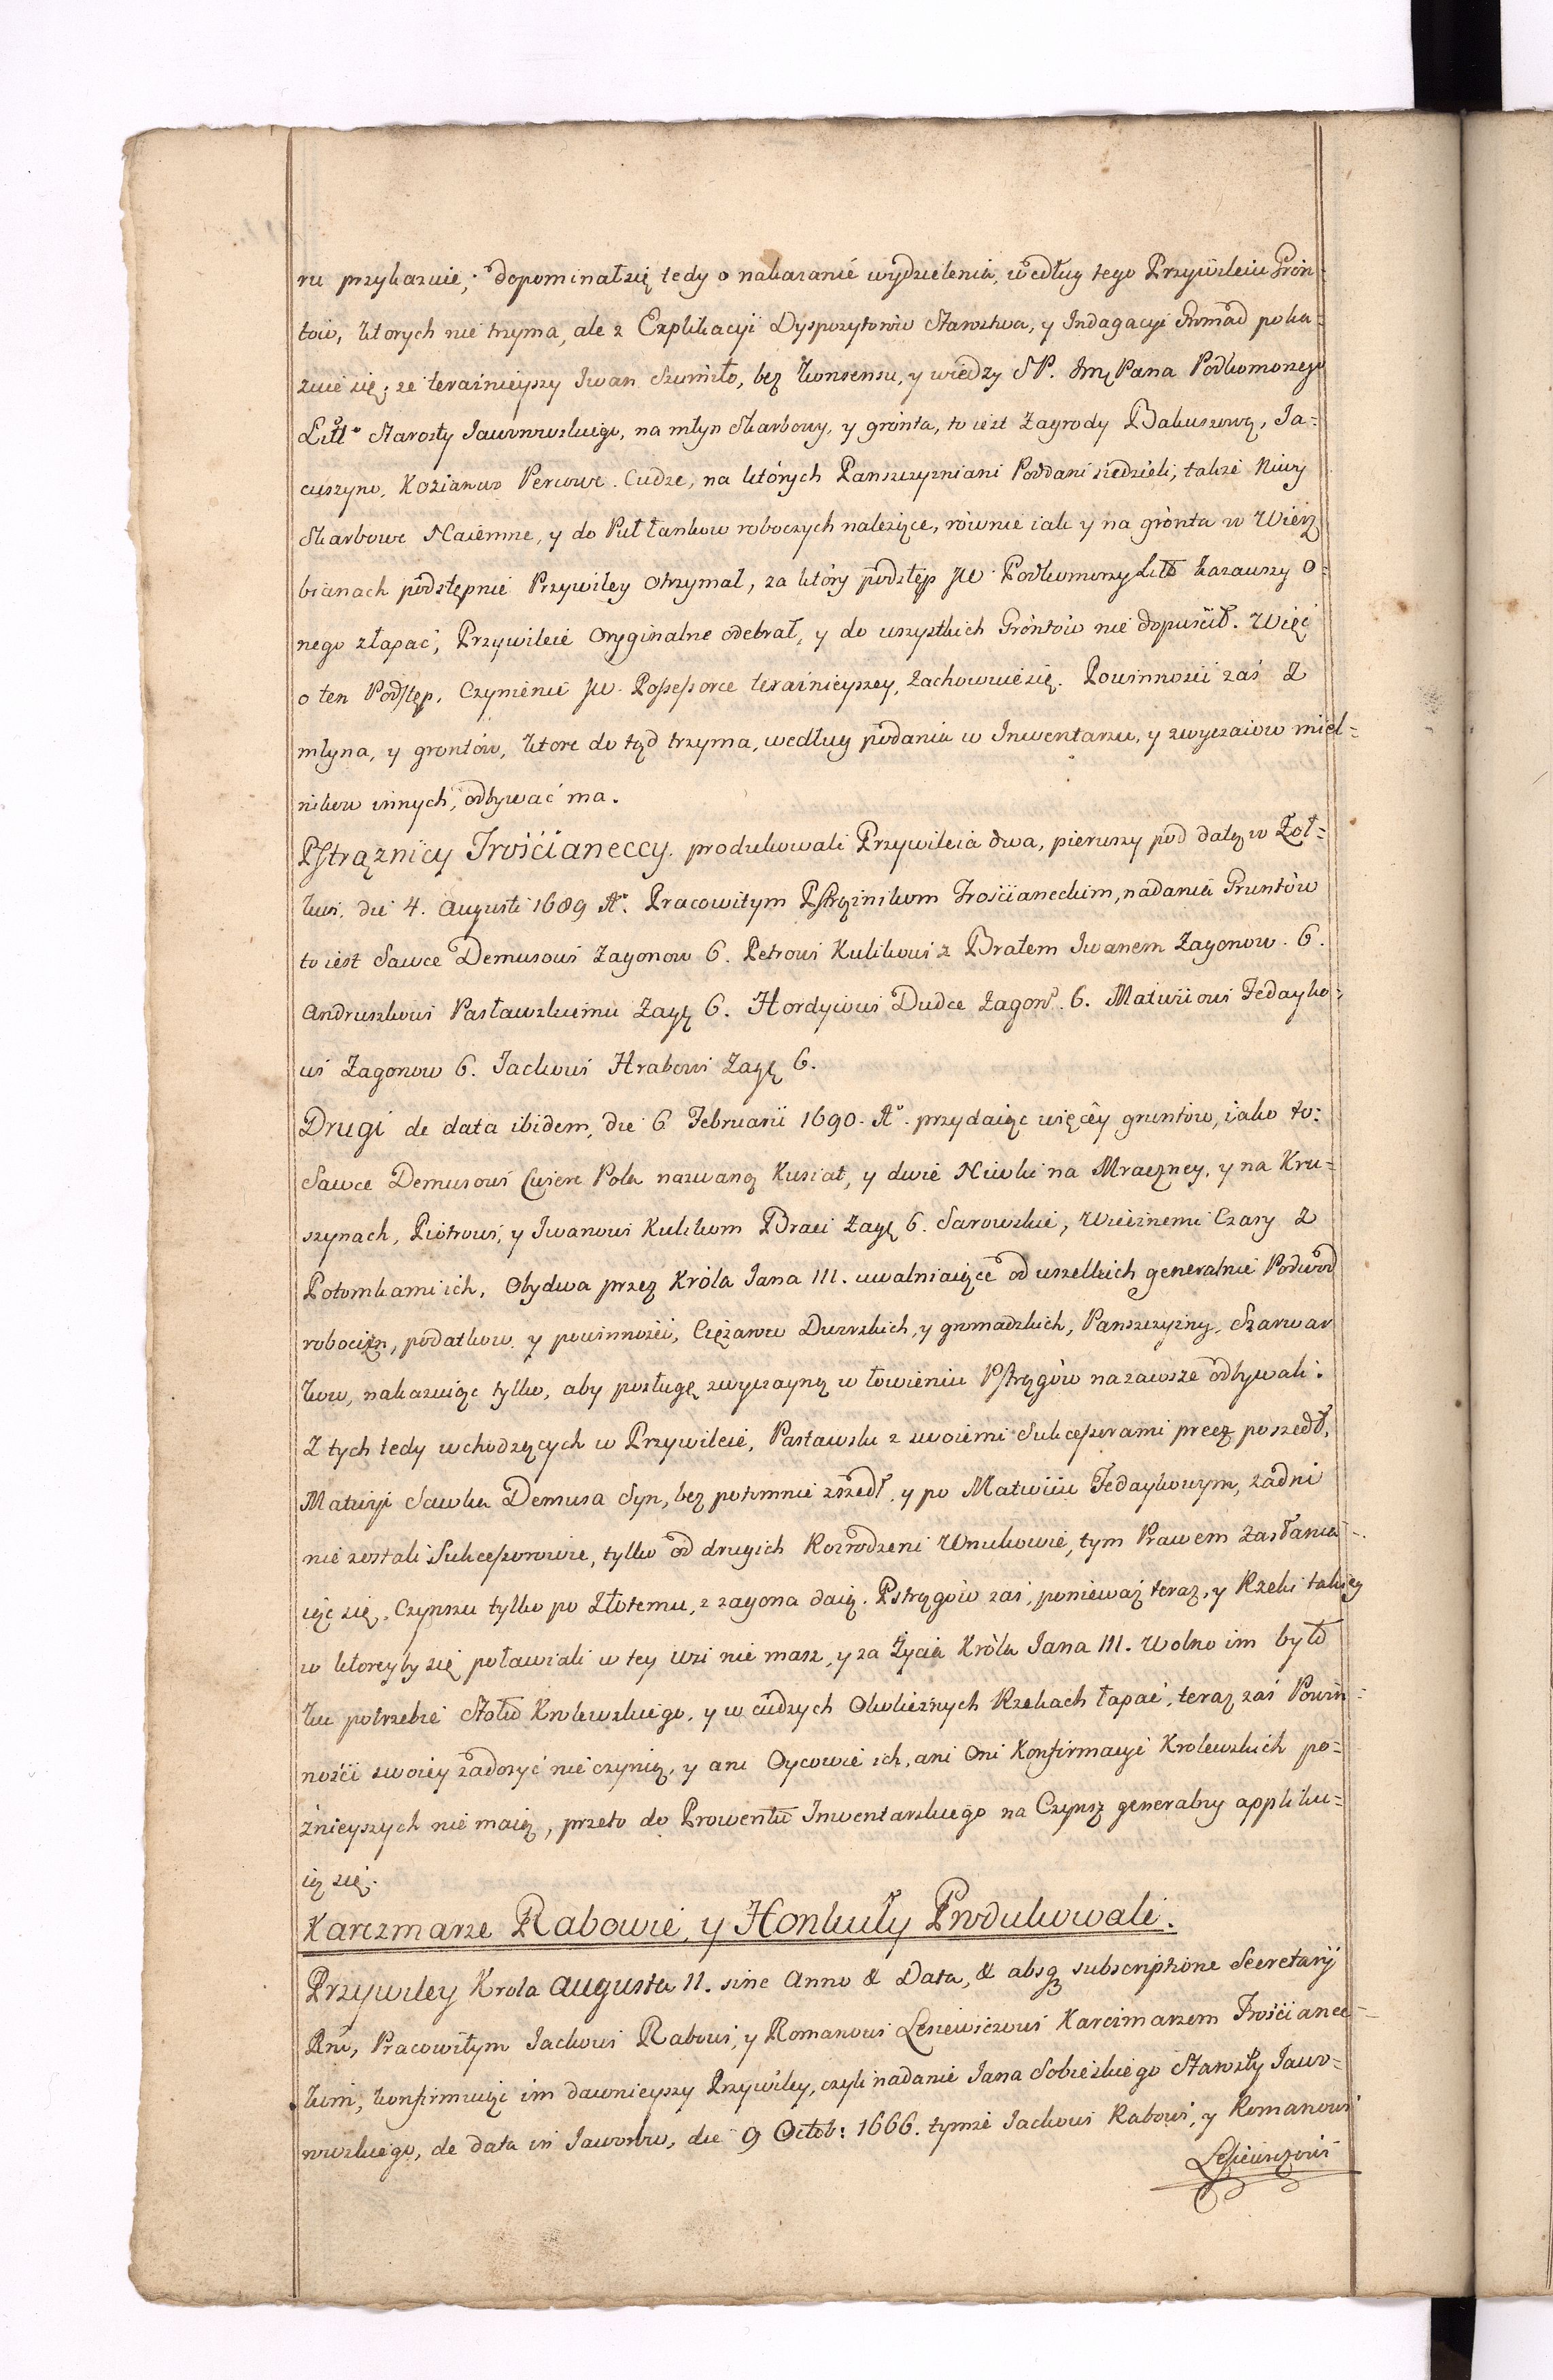 ru przykazuie; dopominał się tedy o nakazanie wydzielenia, według tego Przywileiu Gron-
tow, ktorych nie trzyma, ale z Explikacyi Dyspozytorow Starostwa, y Indagacyi Gromad poka-
zuie się; ze teraźnieyszy Iwan Szumiło, bez konsensu, y wiedzy SP. Jmę Pana Podkomorzego
Litt° Starosty Jaworowskiego, na młyn Skarbowy, y gronta, to iest Zagrody Bakuszową, Ja-
cuszyno, Kozianus Percowe. Cudze, na których Panszczyzniani Poddani siedzieli, także Niwy
Skarbowe Naiemne, y do Puł łankow roboczych należące, rownie iak y na gronta w Wierz
bianach podstępnie Przywiley otrzymał, za który podstęp JW. Podkomorzy Litt kazawszy o-
nego złapać, Przywileie Oryginalne odebrał, y do wszystkich Gróntów nie dopuścił. Więc
o ten Podstęp, Czynienie JW. Possessorce teraźnieyszey, zachowuie się. Powinności zaś z
młyna, y grontów, ktore do tąd trzyma, według podania w Inwentarzu, y zwyczaiow miel-
nikow innych, odbywać ma.
Pstrąznicy Trościaneccy. produkowali Przywileia dwa, pierwszy pod datą w Żoł-
kwi, die 4. Augusti 1689 A°. Pracowitym Pstrąznikom Trościaneckim, nadania Gruntów
to iest Sawce Demusowi Zagonow 6. Petrowi Kulikowi z Bratem Iwanem Zagonow. 6.
Andruszkowi Pasławskiemu Zagę 6. Hordyiowi Dudce Zagonw. 6. Matwiiowi Fedayko-
wi Zagonow 6. Jackowi Hrabowi Zagę 6.
Drugi de data ibidem, die 6 Februarii 1690. A°. przydaiąc więcéy gruntow, iako to:
Sawce Demusowi Cwierc Pola nazwaną Kusiat, y dwie Niwki na Mraczney, y na Kru-
szynach, Piotrowi, y Iwanowi Kulikom Braci Zagę 6. Sarowskie, Wiecznemi Czasy z
Potomkami ich, Obydwa przez Króla Jana III. uwalniaiące od wszelkich generalnie Podwód
robocizn, podatkow y powinności, Ciężarow Dworskich, y gromadzkich, Panszczyzny, Szarwar
kow, nakazuiąc tylko, aby posługę zwyczayną w łowieniu Pstrągów na zawsze odbywali.
Z tych tedy wchodzących w Przywileie, Pasławski z swoiemi Sukcessorami precz poszedł,
Matwiy Sawka Demusa Syn, bez potomnie zszedł, y po Matwiiu Fedaykowym, żadni
nie zostali Sukcessorowie, tylko od drugich Rozrodzeni Wnukowie, tym Prawem Zasłania-
iąc się, Czynszu tylko po Złotemu, z zagona daią. Pstrągów zaś, ponieważ teraz, y Rzeki takiey
w ktoreyby się poławiali w tey wsi nie masz, y za Życia Króla Jana III. wolno im było
ku potrzebie Stołu Krolewskiego, y w cudzych Okolicznych Rzekach łapać, teraz zaś Powin-
ności swoiey zadosyć nie czynią, y ani Oycowie ich, ani Oni Konfirmacyi Krolewskich po-
źnieyszych nie maią, przeto do Prowentu Inwentarskiego na Czynsz generalny appliku-
ią się.
Karczmarze Rabowie, y Honkuły Produkowali.
Przywiley Krola Augusta II. sine Anno & Data, & absq subscriptione Secretarij
Rni, Pracowitym Jackowi Rabowi, y Romanowi Lesiewiczowi Karcimarzom Trościanec-
kim, konfirmuiąc im dawnieyszy Przywiley, czyli nadanie Jana Sobieskiego Starosty Jawo-
rowskiego, de data in Jaworow, die 9 Octob: 1666. tymże Jackowi Rabowi, y Romanowi
Lesiewiczowi